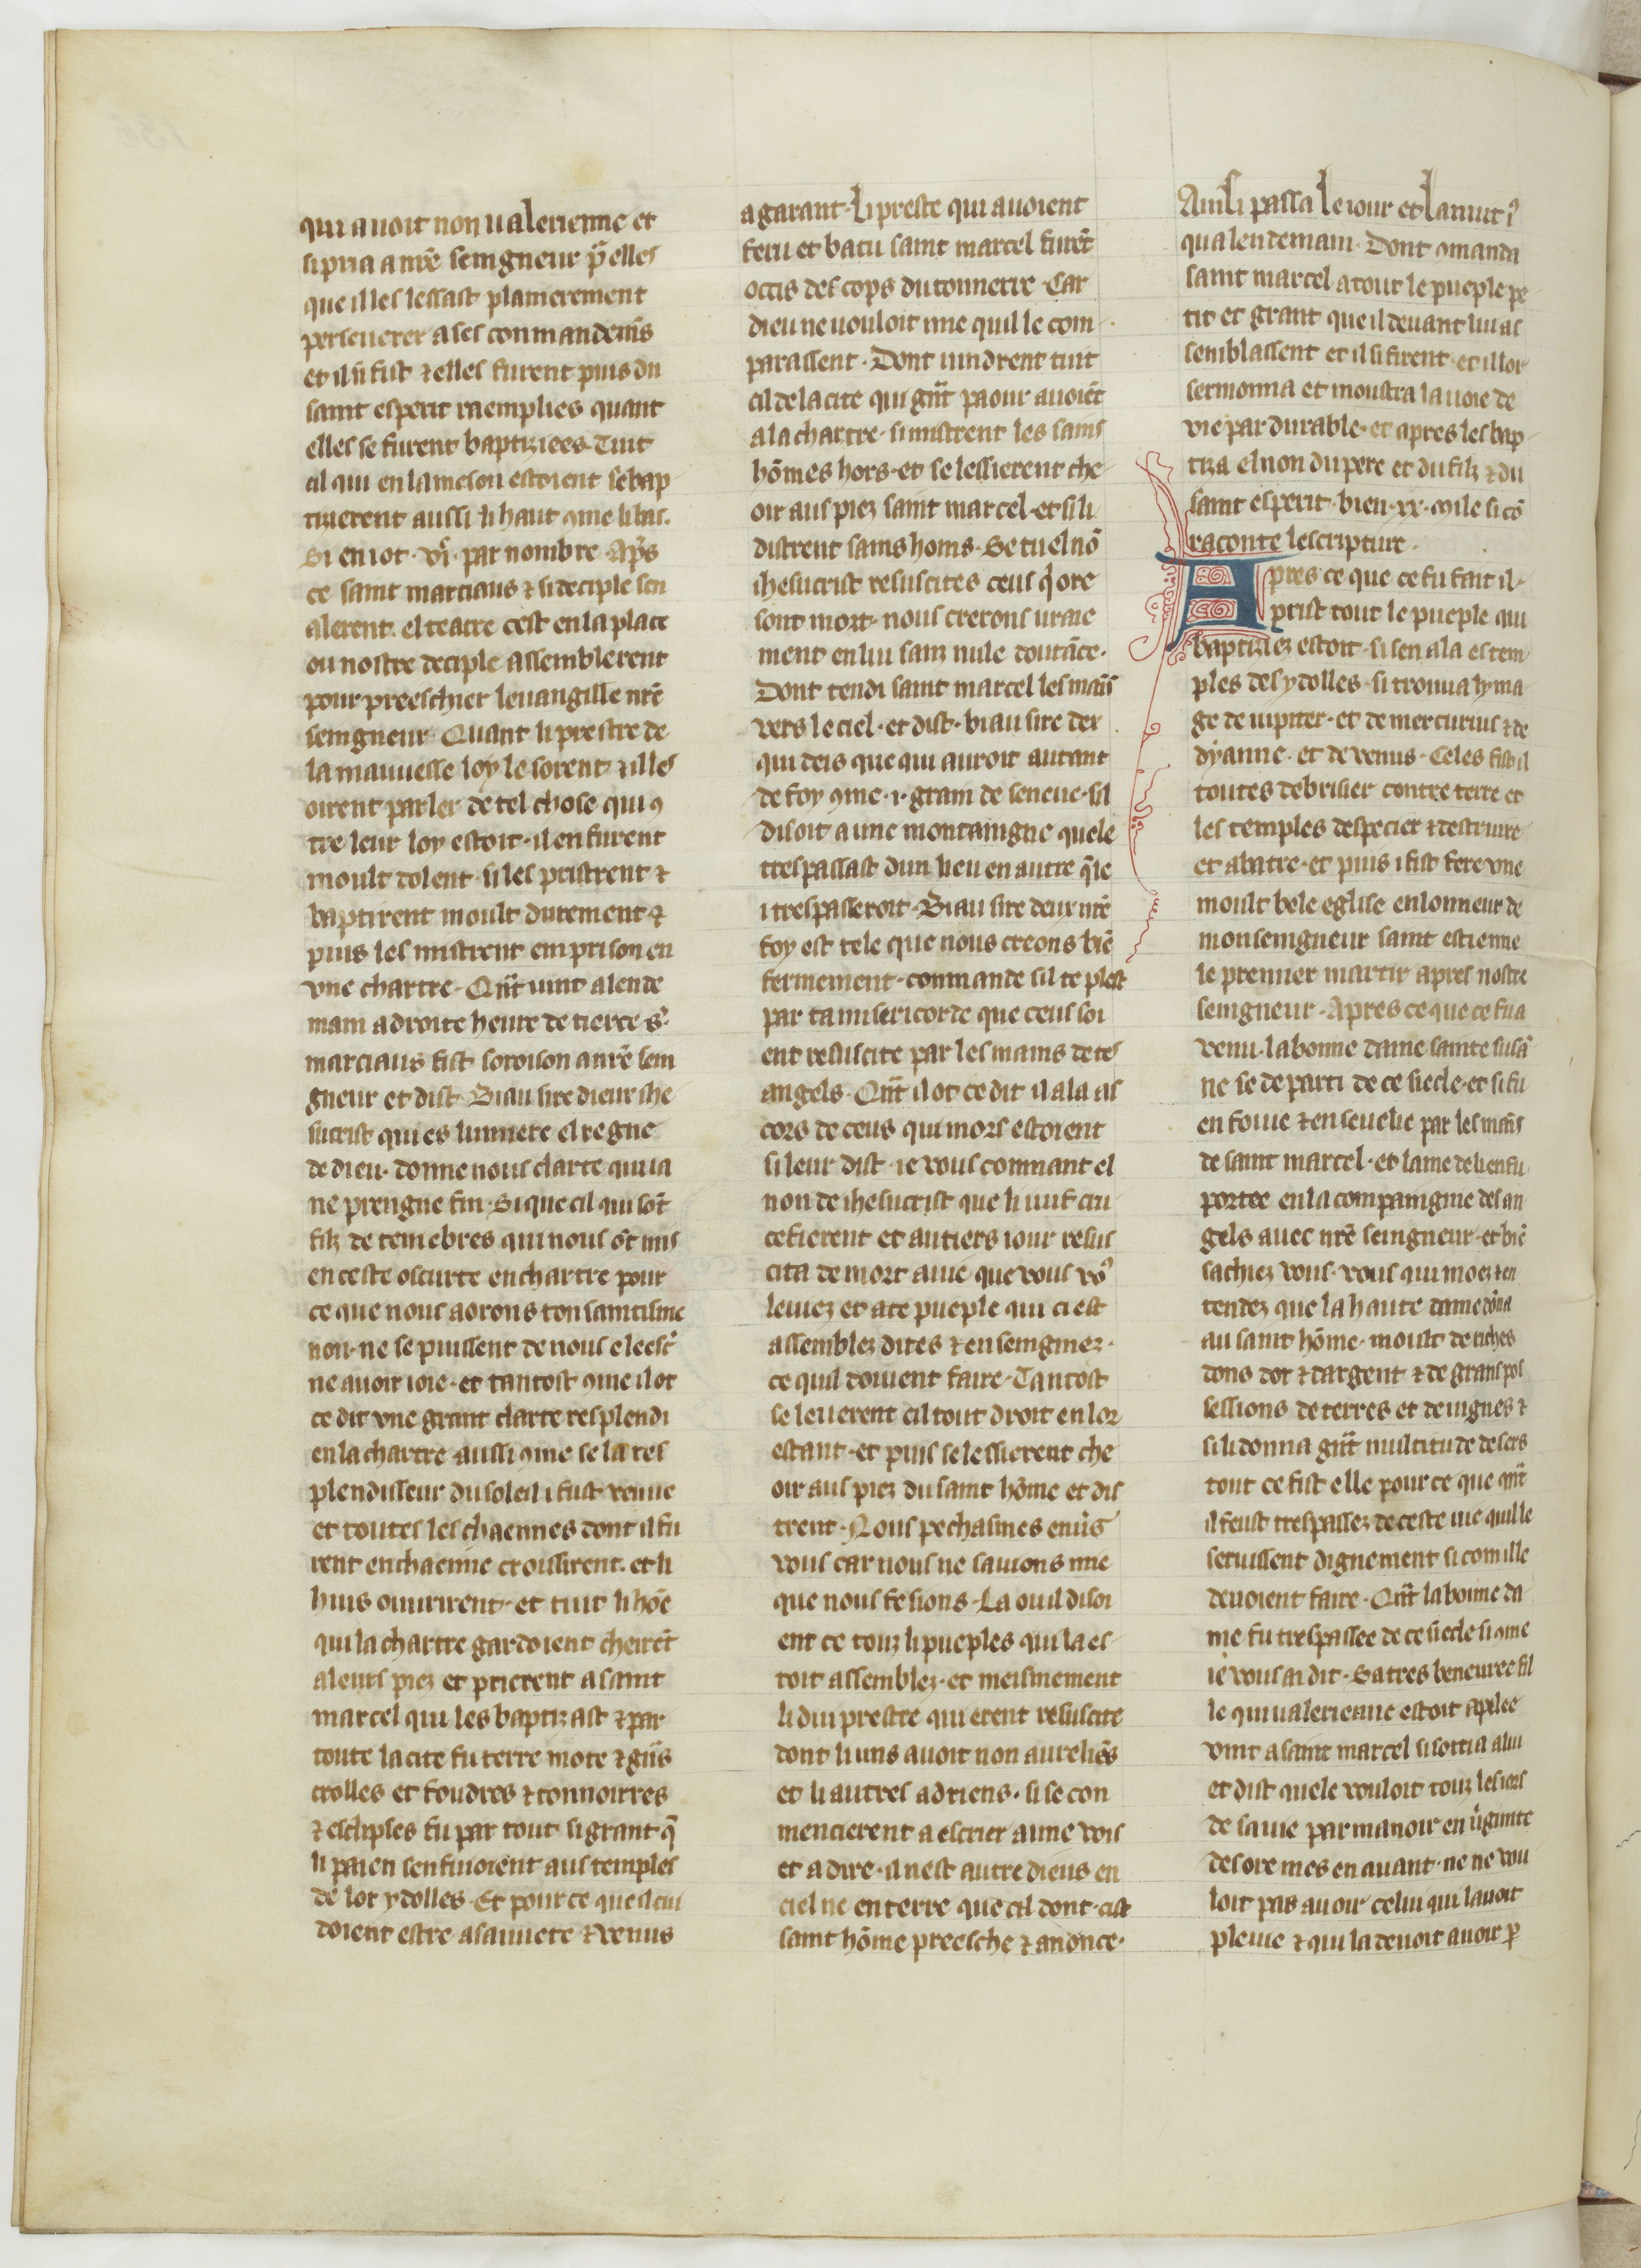 qui auoit non ualerienne et
si pria a nr̄e seingneur p̄ elles
que il les lessast plainerement
perseuerer a ses conmandemēs
et il si fist ⁊ elles furent puis du
saint esperit raemplies quant
elles se furent baptiziees. Tuit
cil qui en la meson estoient se bap
tizierent aussi li haut ꝯme li bas.
Si en i ot .vjᶜ. par nombre. Ap̄s
ce saint marciaus ⁊ si deciple sen
alerent el teatre cest en la place
ou nostre deciple assemblerent
pour preeschier leuangille nr̄e
seingneur. Quant li prestre de
la mauuesse loy le sorent ⁊ illes
oirent parler de tel chose qui ꝯ
tre leur loy estoit. il en furent
moult dolent. si les pristrent ⁊
baptirent moult durement ⁊
puis les mistrent en prison en
vne chartre. Qn̄t uint a lende
main a droite heure de tierce. s.
marciaus fist soroison a nr̄e sein
gneur et dist. Biau sire dieux ihe
sucrist qui es lumiere el regne
de dieu. donne nous clarte qui ia
ne prengne fin. Si que cil qui sōt
filz de tenebres qui nous ōt mis
en ceste oscurte en chartre pour
ce que nous aorons ton saintisme
non. ne se puissent de nous eleesc̄
ne auoir ioie. et tantost ꝯme il ot
ce dit vne grant clarte resplendi
en la chartre aussi ꝯme se la res
plendisseur du soleil i fust venue
et toutes les chaennes dont il fu
rent enchaenne croissirent. et li
huis ouurirent. et tuit li hōe
qui la chartre gardoient cheirēt
a leurs piez et prierent a saint
marcel qui les baptizast ⁊ par
toute la cite fu terre mote ⁊ gn̄s
crolles et foudres ⁊ tonnoirres
⁊ esclipses fu par tout si grant q̄
li paien senfuioient aus temples
de lor ydolles. Et pour ce que il cui
doient estre a sauuete ⁊ venus
a garant. Li preste qui auoient
feru et batu saint marcel furēt
occis des cops du tonnerre. Car
dieu ne uouloit mie quil le com
parassent. Dont uindrent tuit
cil de la cite qui gn̄t paour auoiēt
a la chartre. si mistrent les sains
hōmes hors. et se lessierent che
oir aus piez saint marcel. et si li
distrent sains homs. Se tu el nō
ihesucrist resuscites ceus q̇ ore
sont mort. nous crerons uraie
ment en lui sanz nule doutāce.
Dont tendi saint marcel les maīs
vers le ciel. et dist. biau sire dex
qui deis que qui auroit autant
de foy ꝯme .i. grain de seneue. sil
disoit a une montaingne quele
trespassast dun lieu en autre q̄le
i trespasseroit. Biau sire deux nr̄e
foy est tele que nous creons biē
fermement. conmande sil te plest
par ta misericorde que ceus soi
ent resuscite par les mains de tes
angels. Qn̄t il ot ce dit il ala as
cors de ceus qui mors estoient
si leur dist. ie vous conmant el
non de ihesucrist que li iuif cru
cefierent et au tiers iour resus
cita de mort a uie que vous vꝰ
leuiez et a ce pueple qui ci est
assemblez dites ⁊ enseingniez.
ce quil doiuent faire. Tantost
se leuerent cil tout droit en lor
estant. et puis se lessierent che
oir aus piez du saint hōme et dis
trent. Nous pechasmes enuīs
vous car nous ne sauions mie
que nous fesions. La ou il disoi
ent ce touz li pueples qui la es
toit assemblez. et meismement
li dui prestre qui erent resuscite
dont li uns auoit non aureliēs
et li autres adriens. si se con
mencierent a escrier a une vois
et a dire. il nest autre dieus en
ciel ne en terre que cil dont cist
saint hōme preesche ⁊ anonce.
Ainsi passa le iour et la nuit i.
qua lendemain. Dont ꝯmanda
saint marcel a tout le pueple pe
tit et grant que il deuant lui as
semblassent et il si firent. et il lor
sermonna et moustra la uoie de
vie pardurable. et apres les bap
tiza el non du pere et du filz ⁊ du
saint esperit. bien .xx. mile si cō
raconte lescripture.
Apres ce que ce fu fait il
prist tout le pueple qui
baptiziez estoit. si sen ala es tem
ples des ydolles. si trouua lyma
ge de iupiter. et de mercurius ⁊ de
dyanne. et de venus. Celes fist il
toutes debrisier contre terre et
les temples despecier ⁊ destruire
et abatre. et puis i fist fere vne
moult bele eglise en lonneur de
monseingneur saint estienne
le premier martir apres nostre
seingneur. Apres ce que ce fu a
venu. la bonne dame sainte susā
ne se departi de ce siecle. et si fu
enfouie ⁊ enseuelie par les maīs
de saint marcel. et lame de li en fu
portee en la compaingnie des an
gels auec nr̄e seingneur. et biē
sachiez vous. vous qui moez ⁊ en
tendez que la haute dame dōna
au saint hōme. moult de riches
dons dor ⁊ dargent ⁊ de grans pos
sessions de terres et de uignes ⁊
si li donna gn̄t multitude de sers
tout ce fist elle pour ce que qn̄t
il feust trespassez de ceste uie quil le
seruissent dignement si com ille
deuoient faire. Qn̄t la bonne da
me fu trespassee de ce siecle si ꝯme
ie vous ai dit. Sa tres beneuree fil
le qui ualerienne estoit apelee
vint a saint marcel si sottria a lui
et dist quele vouloit touz les iors
de sa uie parmanoir en v̄ginite
des ore mes en auant. ne ne vou
loit pas auoir celui qui lauoit
pleuie ⁊ qui la deuoit auoir p̄